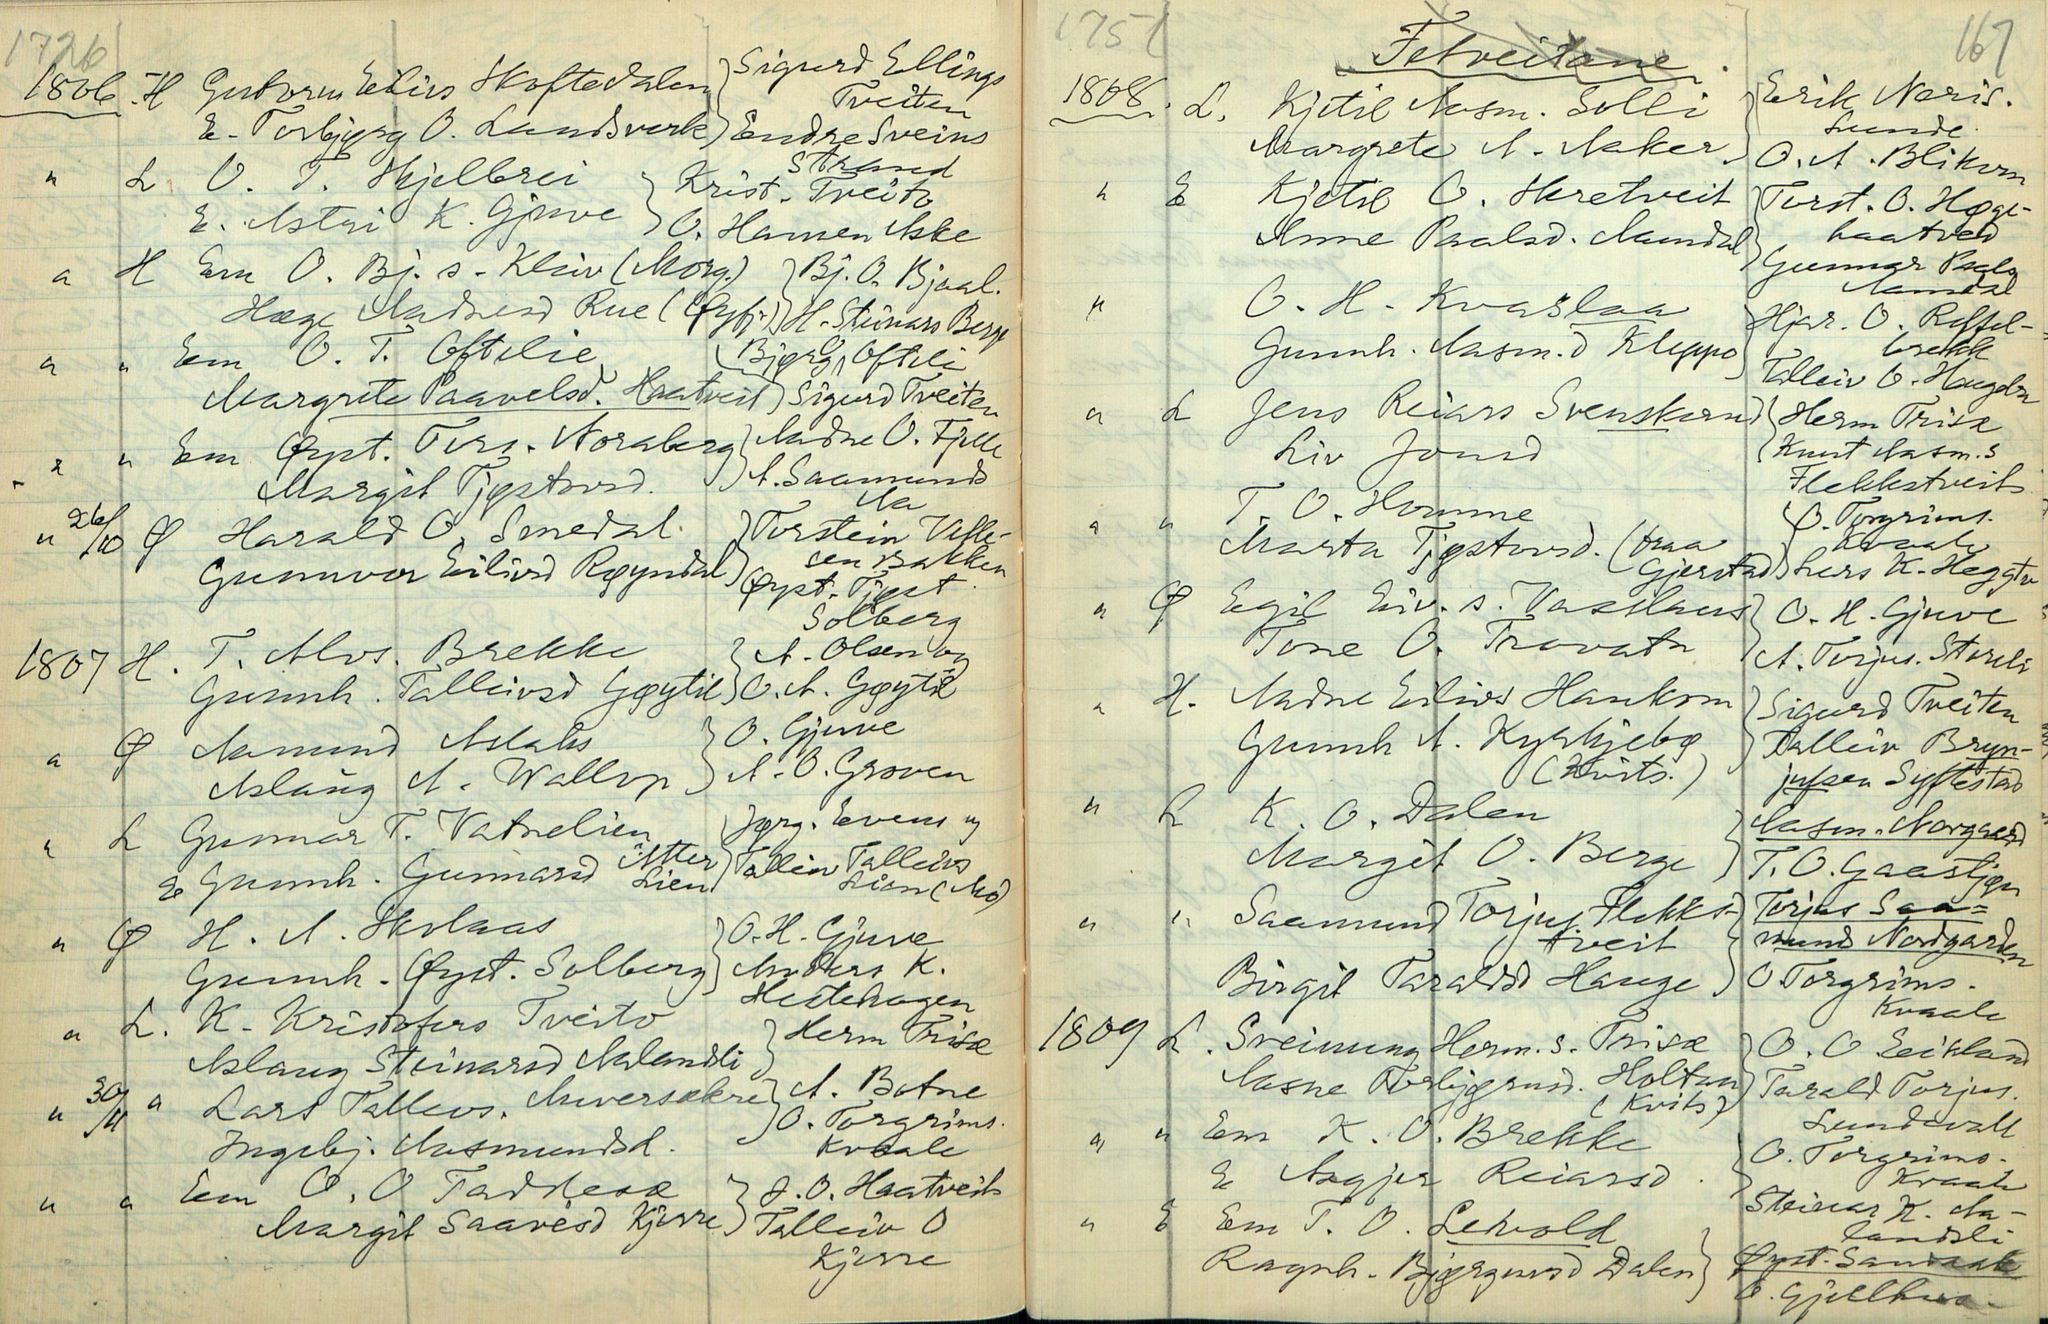 1726
1806. H Guttorm Eilivs Skoftedalen } Sigurd Ellings
Tveiten
E. Torbjørg O. Landsverk } Endre Sveins
Strand
" L O. T. Skjelbrei } Krist. Tveito
E. Astri K. Gjuve } O. Hansen Aske
" H Em O. Bj. s. Kleiv (Morg.) } Bj. O. Bjaal.
Hæge Aadnesd Rue (Øyfj.) } H. Steinars Berge
" " Em O. T. Oftelie } Bjørg. Ofteli
Margrete Paavelsd. Haatveit } Sigurd Tveiten
" " Em Øyst. Ters. Noraberg } Aadne O. Fjelle
Margit Tjøstovsd. } A. Saamunds
Aa
" 26/10 Ø Harald O. Smedal. } Torstein Vetle-
sen Bakken
Gunnvor Eilivsd Røyndal } Øyst. Tjøst.
Solberg
1807 H. T. Alvs. Brekke } A. Olsen og
Gunnh. Talleivsd Gøytil } O. A. Gøytil
" Ø Aamund Aslaks } O. Gjuve
Aslaug A. Wallop } A. O. Groven
" L Gunnar T. Vatnelien } Jørg. Evens og
E Gunnh. Gunnarsd Ytter } Talleiv Talleivs
Lien Lien (Mo)
" Ø H. A. Skolaas } O. H. Gjuve
Gunnh. Øyst. Solberg } Anders K.
Hestehagen
" L. K. Kristofers Tveito } Herm Trisæ
Aslaug Steinarsd Aalandsli
" 30/11 " Lars Talleivs. Miversakre } A. Botne
Ingebj. Aasmundsd. } O. Torgrims.
Kvaale
" " Em O. O Taddesæ } J. O. Haatveit
Margit Saavesd Kjerre } Talleiv O
Kjerre
1751
167
Fetveitane
1808. L. Kjetil Aasm. Solli } Erik Noris.
Lunde.
Margrete A. Aaker. } O. A. Blikom
" E Kjetil O. Skretveit } Torst. O. Høge-
haatved
Anne Paalsd. Aamdal } Gunnar Paals
Aamdal
" O. H. Kvaslaa } Hjar. O. Roffel-
brekk
Gunnh. Aasm.d Kleppo } Talleiv O. Haugdn
" L Jens Reiars Svenskerud } Herm Trisæ
Liv Jonsd } Knut Aasm.s
Flekkstveit
" " T. O. Homme } O. Torgrims.
Kvaale
Marta Tjøstovsd. (fraa
Gjerstad) } Lars K. Heggtv
" Ø Egil Eiv. s. Vaslaus } O. H. Gjuve
Tone O. Trovatn } A. Torjus. Storeli
" H. Aadne Eilivs Haukom } Sigurd Tveiten
Gunnh A. Kyrkjebø } Talleiv Bryn-
(Kvits.) julsen Syftestad
" L K. O. Dalen } Aasm. Norgaard
Margit O. Berge } T. O. Gaastjøn
" " Saamund Torjus. Flekks- } Torjus Saa-
tveit mund Nordgarden
Birgit Taraldsd Hauge } O. Torgrims.
Kvaale
1809 L. Sveinung Herm. s. Trisæ } O. O. Eikland
Aasne Torbjørnsd. Holtan } Tarald Torjus.
(Kvits) Lundevall
" " Em K. O. Brekke } O. Torgrims.
Kvaale
E Asgjer Reiarsd. } Steinar K. Aa-
landsli
" E Em T. O. Leivold } Øyst. Sandaak
Ragnh. Bjørgusd Dalen } O. Gjellhus.